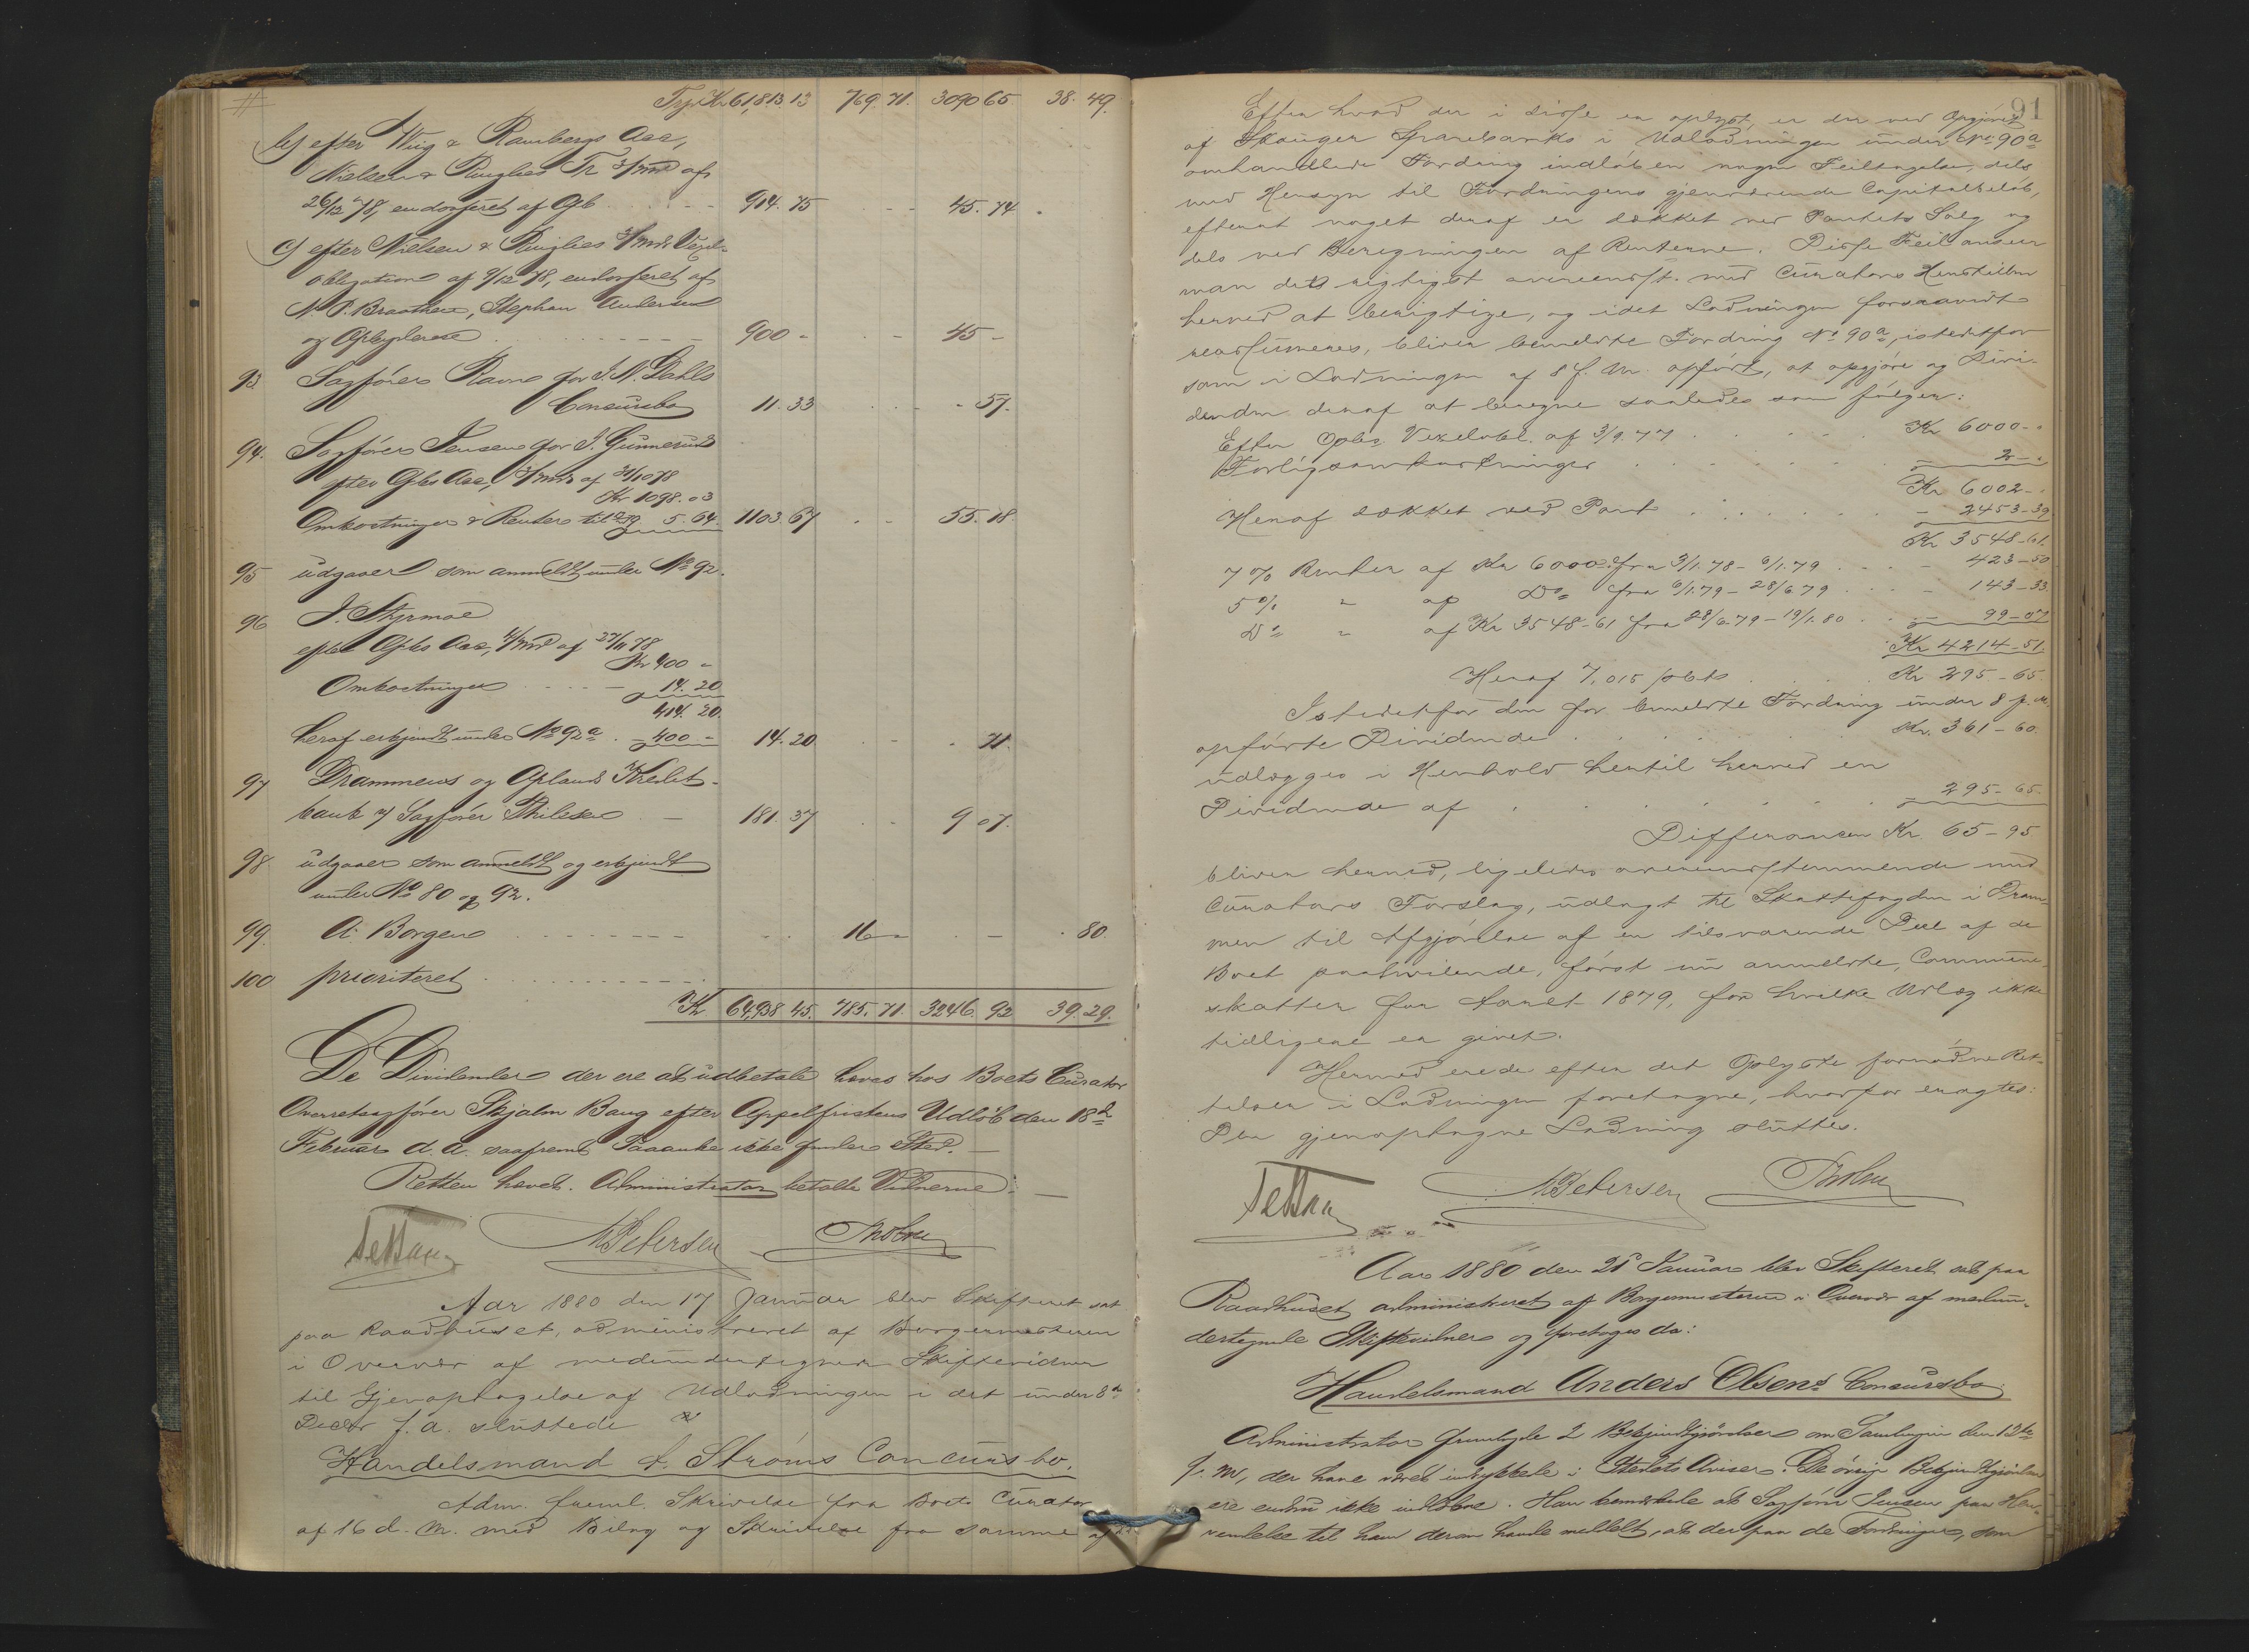 Trp. Kr. 61,813.13 769.71. 3090.65. 38.49.
b) efter Wiig & Rambergs Acc,
Nielsen & Ringlies Tr. 3/md af
26/12 78, endosseret af Glb . . . 914.75 - - 45.74 .
c) efter Nielsen & Ringlies 3/mds Vexel-
obligation af 9/12 78, endosseret af
N. P. Braathen, Stephan Andersen
og . . . 900 - . - 45 -
93. Sagfører Ravn for J. N. Dahls
Concursbo 11.33 . . - 57.
94. Sagfører Jensen for J. Gunnerud
efter Glbs Acc, 3/mds af 31/10 78
Kr 1098.03
Omkostninger & Renter til 5.64. 1103.67 . - 55.18
95 udgaaer som anmeldt under No 92.
96 J. Styrmoe
efter Glbs Acc, 4/md af 27/11 78
Kr 400 -
Omkostninger . . . - 14.20
414.20.
heraf erkjendt under No 92a . - 400 - 14.20 . - . 71.
97 Drammens og Oplands Kredit-
bank v/ Sagfører Thilesen . - 181.37 . . 9.07.
98 udgaaer som anmeldt og erkjendt
under No 80 og 92.
99. A. Borgen . . . 16 - . - . 80.
100 prioriteret . . .
Kr 64,938.45. 785.71. 3246.92 39.29.
De Dividender der ere at udbetale hæves hos Boets Curator
Overretssagfører Skjalm Bang efter Appelfristens Udløb den 18de
Februar d. A. saafremt Paaanke ikke finder Sted. -
Retten hævet. Administrator betalte Vidnerne. -
M Petersen
Aar 1880 den 17 Januar blev Skifteret sat
paa Raadhuset, administreret af Borgermesteren
i Overvær af medundertegnede Skiftevidner
til Gjenoptagelse af Udlodningen i det under 8de
Decbr f. a. sluttede
Handelsmand A. Strøms Concursbo.
Adm. freml. Skrivelse fra Boets Curator
af 16 d. M. med Bilag og Skrivelse fra samme af
91
Efter hvad der i disse er oplyst er der ved Opgjøret
af Skouger Sparebanks i Udlodningen under No 90a
omhandlede Fordring indløben nogen Feiltagelse, dels
med Hensyn til Fordringens gjenværende Capitalbeløb,
efterat noget deraf er dækket ved Pantets Salg og
dels ved Beregningen af Renterne. Disse Feil anseer
man det rigtigst overensst. med Curators Henstillen
herved at berigtige, og idet Lodningen forsaavidt
reassumeres, bliver bemeldte Fordring No 90a, istedetfor
som i Lodningen af 8 f. M. opført, at opgjøre og Divi-
denden deraf at beregne saaledes som følger:
Efter Vexelobl. af 3/9. 77 . . . Kr 6000 - .
Forligsomkostninger . . . - 2 - .
Kr 6002 - .
Heraf dækket ved Pant . . . - 2453 - 39
Kr 3548 - 61.
7 % Renter af Kr 6000 fra 3/1. 78 - 6/1. 79 . . . - 423 - 50
5 % " af Do fra 6/1. 79 - 28/6 79 . . . - 143 - 33.
Do " af Kr 3548 - 61 fra 28/6. 79 - 19/1. 80 . . - 99 - 07
Kr 4214 - 51.
Heraf 7,015 pCt . . . Kr 295 - 65.
Istedetfor den for bemeldte Fordring under 8 f. M.
opførte Dividende . . . Kr. 361 - 60.
udlægges i Henhold hertil herved en
Dividende af . . . - 295 - 65.
Differancen Kr. 65 - 95
bliver herved, ligeledes overensstemmende med
Curators Forslag, udlagt til Skattefogden i Dram-
men til Afgjørelse af en tilsvarende Deel af de
Boet paahvilende, først nu anmeldte, Commune-
skatter for Aaret 1879, for hvilke Udlæg ikke
tidligere er givet.
Hermed ere de efter det Oplyste fornødne Ret-
telser i Lodningen foretagne, hvorfor eragtes:
Den gjenoptagne Lodning sluttes.
M Petersen
Aar 1880 den 21 Januar blev Skifteret sat paa
Raadhuset administreret af Borgemesteren i Overvær af medun-
dertegnede Skiftevidner og foretoges da:
Handelsmand Anders Olsens Concursbo.
Administrator fremlagde 2 Bekjendtgjørelser om Samlingen den 13de
f. M., der have været indrykkede i Stedets Aviser. De øvrige Bekjendtgjørelser
ere endnu ikke indløbne. Han bemærkede at Sagfører Jensen paa Hen-
vendelse til ham derom havde meldt, at der paa de Fordringer, som